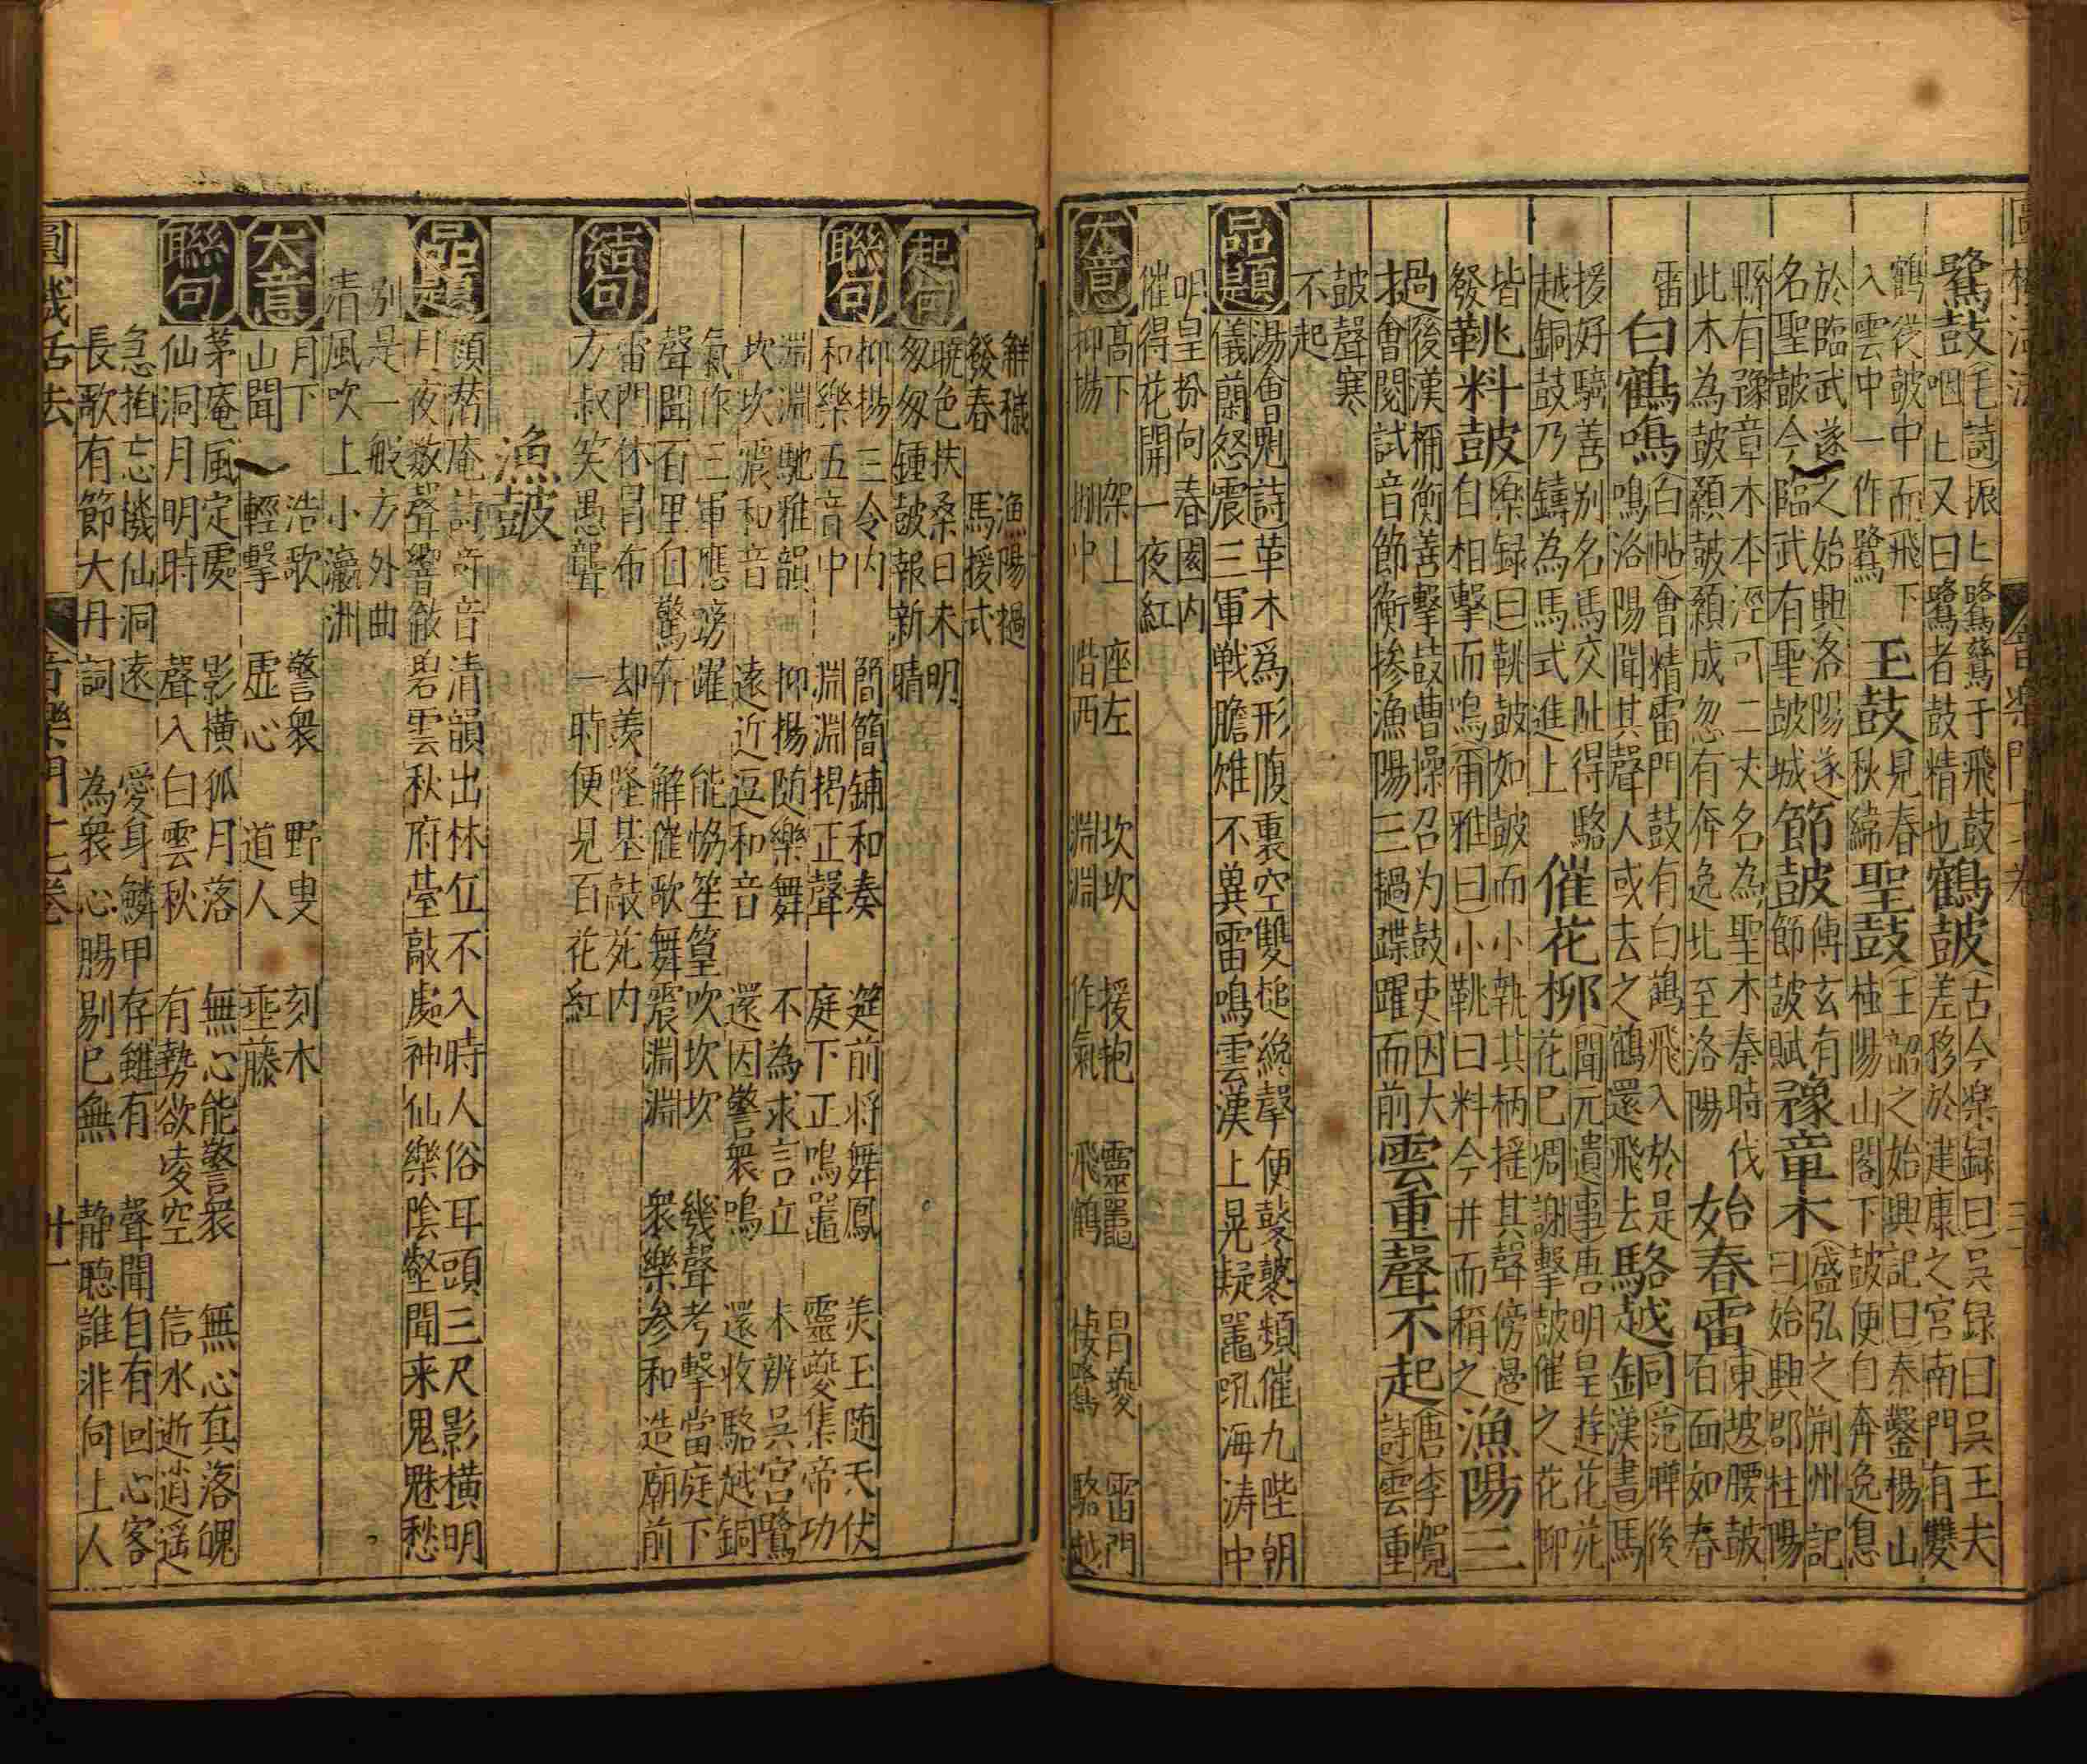 鷺鼓(毛詩)振〻鷺鷺于飛鼓
咽〻又曰鷺者鼓精也鶴皷(古今楽録曰)吳録曰吳王夫
差移於建康之宮南門有雙
鶴從皷中而飛下
入雲中一作鷺玉鼓見春秋緯聖鼓(王韶之始興記曰)秦鑿楊山
桂陽山閣下皷便自奔逸息
於臨武遂之始興洛陽遂
名聖皷今臨武有聖皷城節皷傅玄有節皷賦豫章木(盛弘之荊州記曰)始興郡桂陽
縣有豫章木本徑可二丈名為聖木秦時伐
此木為皷顙皷顙成忽有奔逸北至洛陽始春雷(東坡腰皷)百面如春
雷
白鶴鳴(白帖)會精雷門鼓有白鶴飛入於是
鳴洛陽聞其聲人或去之鶴還飛去駱越銅(范曄後漢書)馬
援好騎善別名馬交阯得駱
越銅鼓乃鑄為馬式進上催花柳(聞元遺事)唐明皇遊花苑
花巳凋謝擊皷催之花柳
皆
發鞉料鼓(樂録曰)鞉鼓如皷而小執其柄搖其聲傍邊
自相擊而鳴(爾雅曰)小鞉曰料今井而稱之漁陽三
過後漢禰衡善擊鼓曹操召为鼓吏因大
會閱試音節衡摻漁陽三撾蹀躍而前雲重聲不起(唐李賀詩)雲重
皷聲寒
不起
品題
湯會魁詩革木爲形腹裏空雙槌纔聲便鼕鼕類催九陛朝
儀蘭怒震三軍戰膽雄不異雷鳴雲漢上晃疑鼉吼海涛中
明皇扮向春園内
催得花開一夜紅
大意
高下 架上 座左 坎坎 援枹 靈鼉 冐夔 雷門
抑揚 掤中 階西 淵淵 作氣 飛鶴 棲鷺 駱越
鮮穢 漁陽撾
發春 馬援式
起句
曉色扶桑日未明
匆匆鍾皷報新晴
聯句
抑揚三令内 簡簡鋪和奏 筵前将舞鳳 羙玉随天伏
和樂五音中 淵淵揭正聲 庭下正鳴鼉 靈夔集帝功
淵淵馳雅韻 抑揚随樂舞 不為求言立 未辨吳宮鷺
坎坎震和音 遠近逗和音 還因警衆鳴 還收駱越銅
氣作三軍應踴躍 能恊笙篁吹坎坎 幾聲考擊當庭下
聲聞百里自驚奔 解催歌舞震淵淵 衆樂參和造廟前
結句
雷門休冐布 却羨隆基敲苑内
方叔笑愚聾 一時便見百花紅
漁皷
品題
顔替庵詩奇音清韻出林丘不入時人俗耳頭三尺影横明
月夜数聲響徹碧雲秋府臺敲處神仙樂陰壑聞来鬼魅愁
別是一般方外曲
清風吹上小瀛洲
大意
月下 浩歌 警衆 野叟 刻木
山聞 輕擊 虚心 道人 垂藤
聯句
茅庵風定處 影横狐月落 無心能警衆 無心真落魄
仙洞月明時 聲入白雲秋 有勢欲凌空 信水逝逍遥
急拍忘機仙洞遠 愛身鱗甲存雖有 聲聞自有回心客
長歌有節大丹詞 為衆心腸剔巳無 静聴誰非向上人
圓機活法 音樂門十七卷 廿一